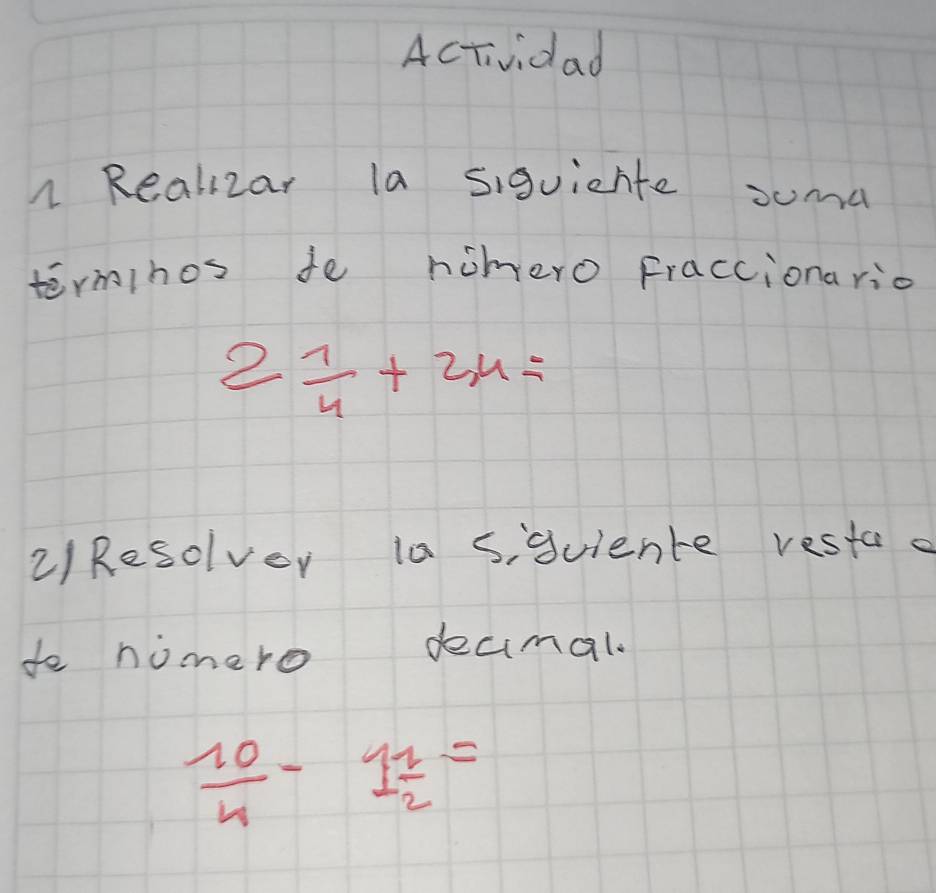 Actividad
1 Realizar la siguiente suma
términos de número Fraccionario
2 1/4 + 2,4 =
2) Resolver la siguiente resta e
de número decimal.
10/4 - 1 1/2 =